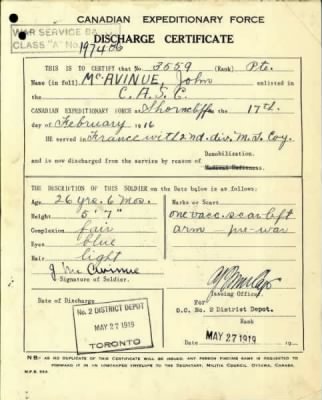 CANADIAN EXPEDITIONARY FORCE
WAR SERVICE BA
CLASS "A" No.
DISCHARGE CERTIFICATE
THIS IS TO CERTIFY that No. 2559 (Rank) Pte.
Name (in full) McAVINUE, John enlisted in
C.A.S.C.
CANADIAN EXPEDITIONARY FORCE at Shorncliffe the 17th
day of February 1916
HE served in France with 2nd. div. M.T. Coy.
and is now discharged from the service by reason of Demobilization.
Medical Unfitness.
THE DESCRIPTION OF THIS SOLDIER on the Date below is as follows:
Age 26 yrs. 6 Mos.
Height 5' 7"
Complexion fair
Eyes blue
Hair light
Signature of Soldier.
Marks or Scars
one vacc. scar left
arm - pre-war
Issuing Officer
for
O.C. No. 2 District Depot.
Rank
Date of Discharge
No. 2 DISTRICT DEPOT
MAY 27 1919
TORONTO
Date MAY 27 1919 19
N.B.- AS NO DUPLICATE OF THIS CERTIFICATE WILL BE ISSUED, ANY PERSON FINDING SAME IS REQUESTED TO
FORWARD IT IN AN UNSTAMPED ENVELOPE TO THE SECRETARY, MILITIA COUNCIL, OTTAWA, CANADA.